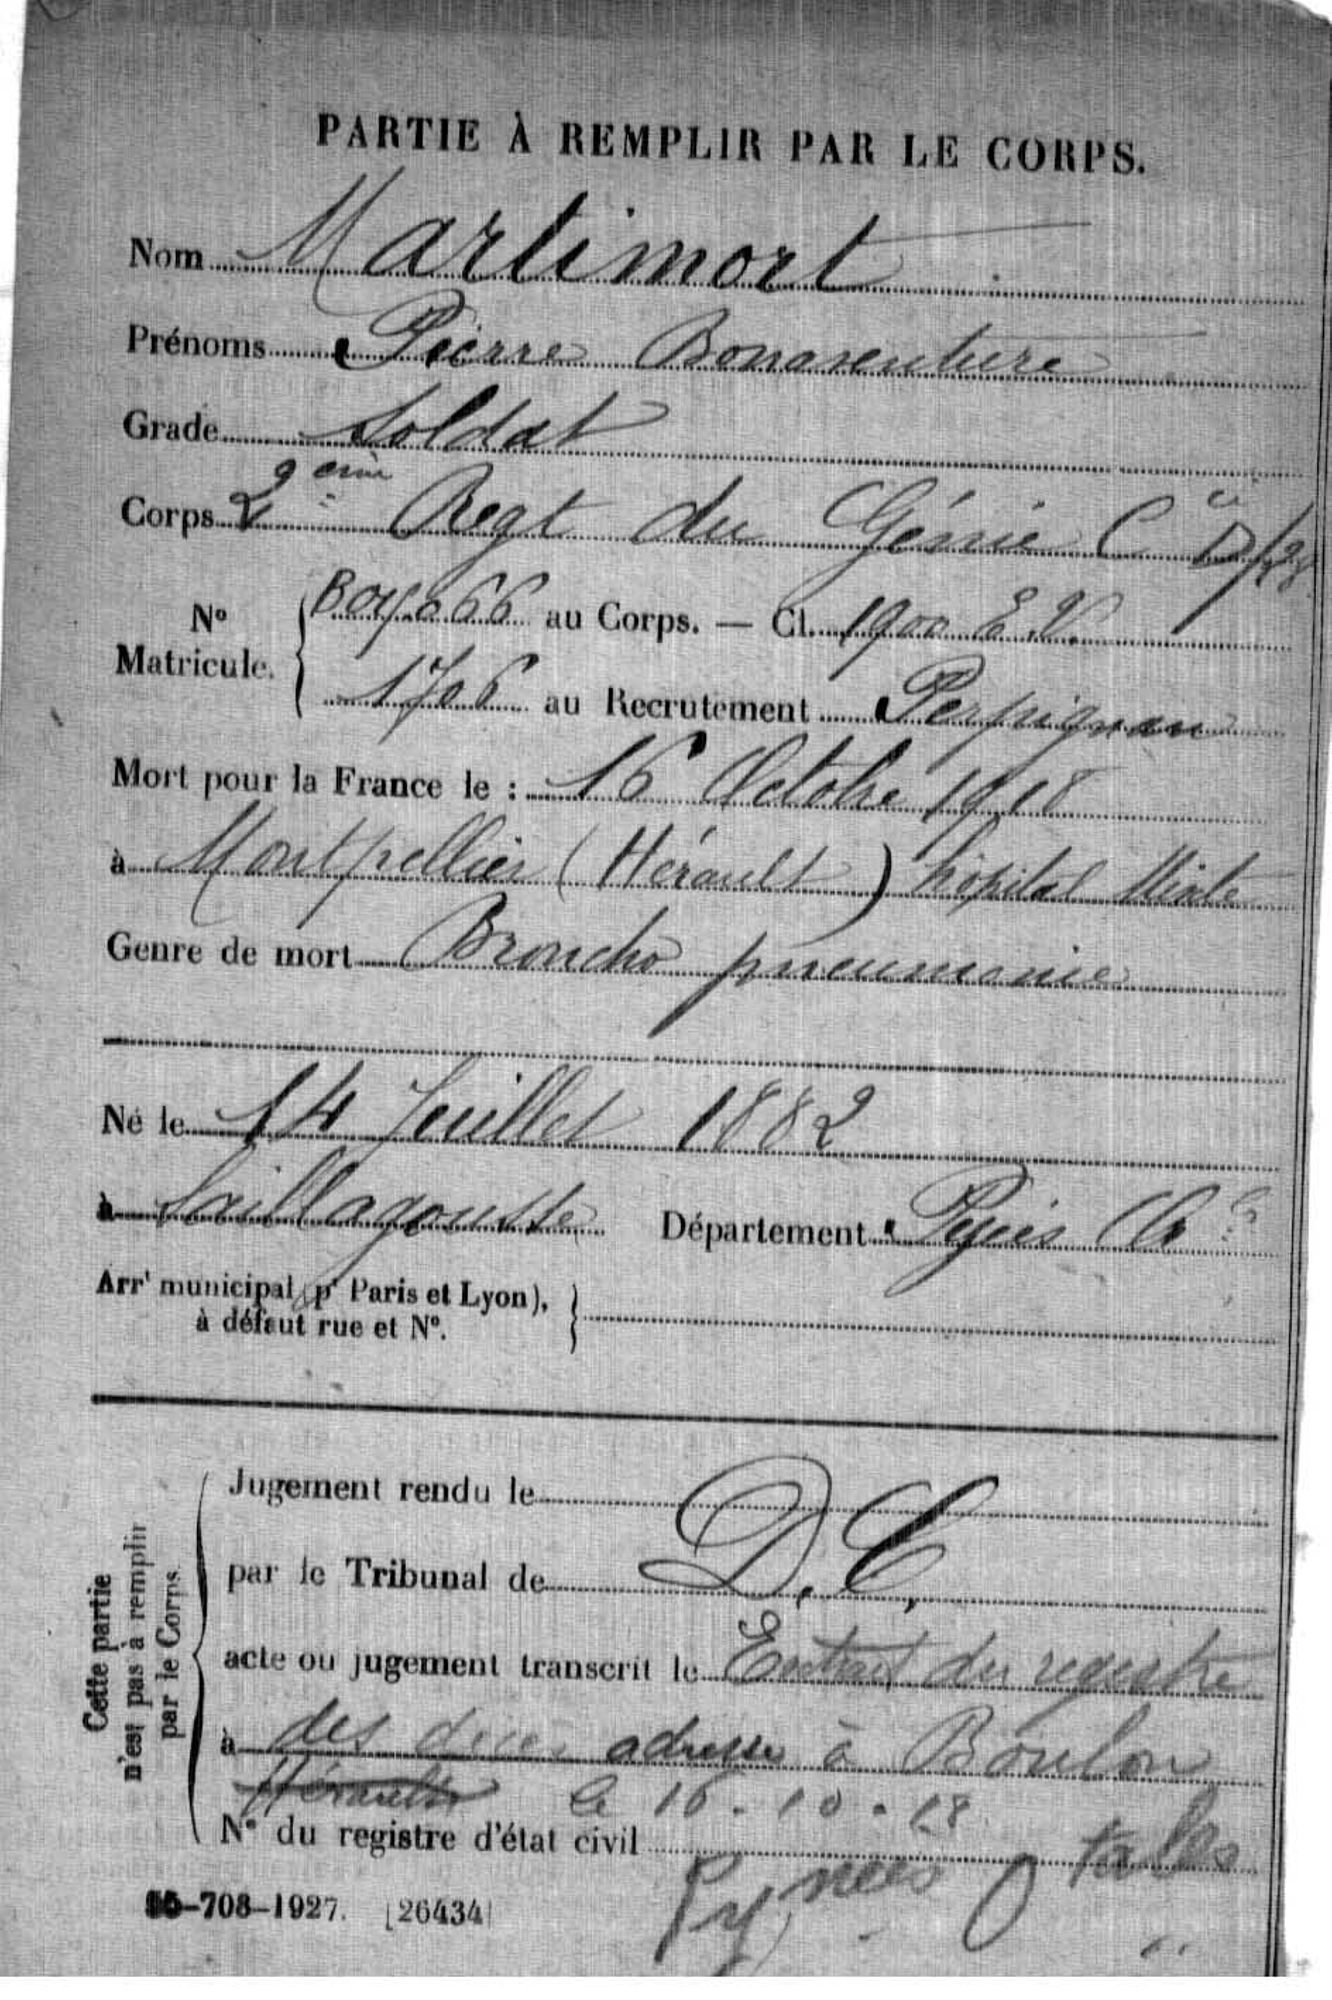 PARTIE À REMPLIR PAR LE CORPS.
Nom Martimort
Prénoms Pierre Bonaventure
Grade Soldat
Corps 2 eme Regt du Génie Cie D/28
N° Matricule. 66 au Corps. — Cl. 1900 E.V.
1706 au Recrutement Perpignan
Mort pour la France le : 16 Octobre 1918
à Montpellier (Hérault) hôpital Mixte
Genre de mort Broncho pneumonie
Né le 14 Juillet 1882
à Saillagousse Département Pyées Oles
Arrt municipal (pr Paris et Lyon),
à défaut rue et N°.
Cette partie n'est pas à remplir par le Corps.
Jugement rendu le
par le Tribunal de D.C.
acte ou jugement transcrit le Extrait du registre
à des deces adresse à Boulou
Hérault le 16-10-18
N° du registre d'état civil
Pynées O tales
-708-1927. [26434]